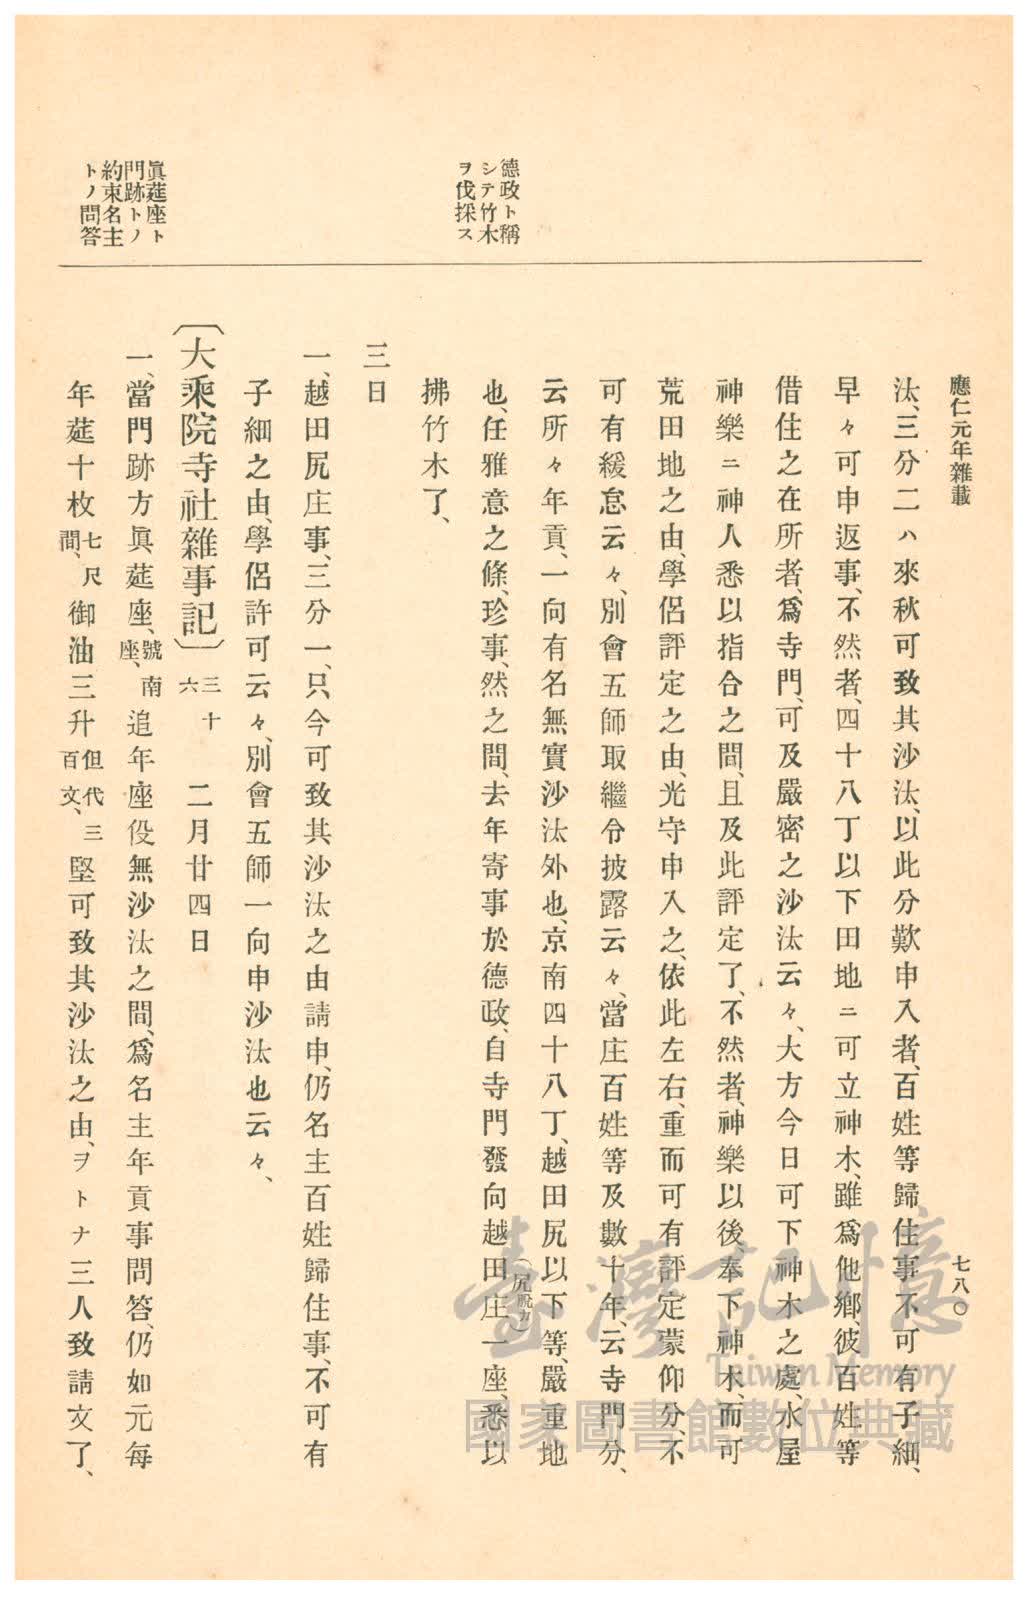 應仁元年雜載
七八〇
德政ト稱
シテ竹木
ヲ伐採ス
眞莚座ト
門跡トノ
約束名主
トノ問答
汰、三分二ハ來秋可致其沙汰、以此分歎申入者、百姓等歸住事不可有子細、
早々可申返事、不然者、四十八丁以下田地ニ可立神木、雖爲他鄕、彼百姓等
借住之在所者、爲寺門、可及嚴密之沙汰云々、大方今日可下神木之處、水屋
神樂ニ神人悉以指合之間、且及此評定了、不然者、神樂以後奉下神木、而可
荒田地之由、學侶評定之由、光守申入之、依此左右、重而可有評定蒙仰分、不
可有緩怠云々、別會五師取繼令披露云々、當庄百姓等及數十年、云寺門分、
云所々年貢、一向有名無實沙汰外也、京南四十八丁、越田尻以下等、嚴重地
也、任雅意之條、珍事、然之間、去年寄事於德政、自寺門發向越田庄一座、悉以
（尻脫カ）
拂竹木了、
三日
一、越田尻庄事、三分一、只今可致其沙汰之由請申、仍名主百姓歸住事、不可有
子細之由、學侶許可云々、別會五師一向申沙汰也云々、
〔大乘院寺社雜事記〕三十六 二月廿四日
一、當門跡方眞莚座、號南座、追年座役無沙汰之間、爲名主年貢事問答、仍如元每
年莚十枚七尺間、御油三升但代三百文、堅可致其沙汰之由、ヲトナ三人致請文了、
臺灣記憶
Taiwan Memory
國家圖書館數位典藏